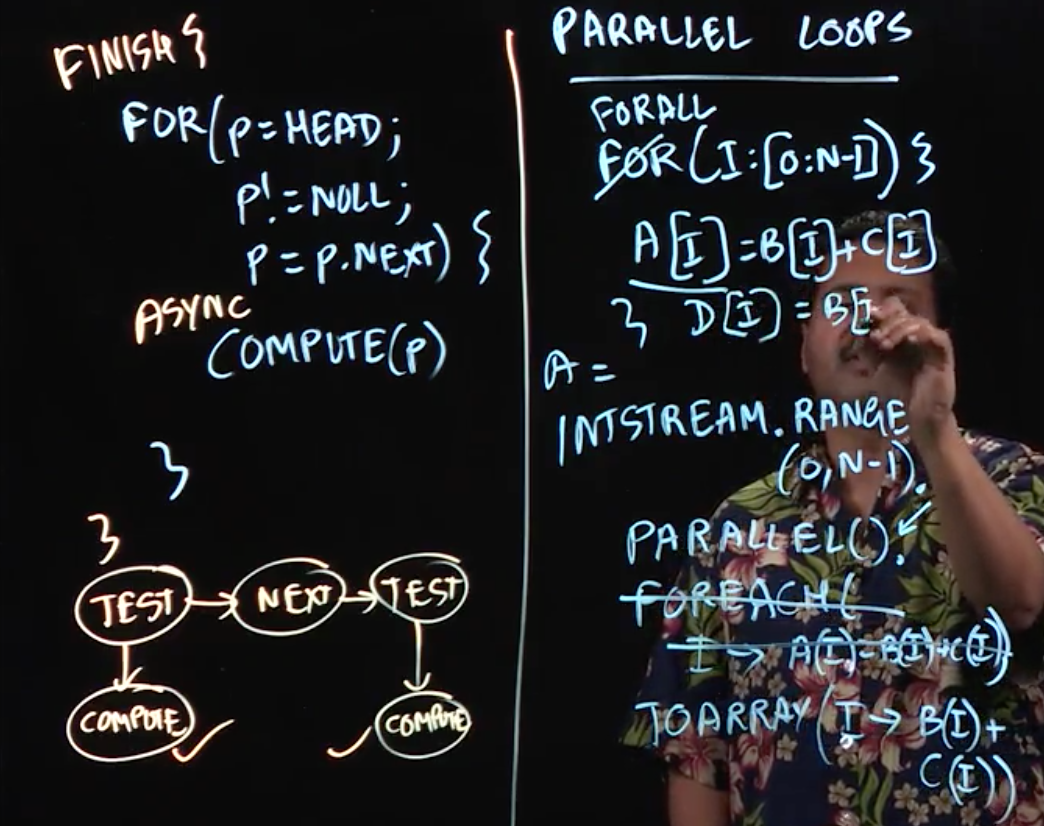 FINISH {
FOR(P=HEAD;
P!=NULL;
P=P.NEXT) {
ASYNC
COMPUTE(P)
}
}
TEST → NEXT → TEST
COMPUTE COMPUTE
PARALLEL LOOPS
FORALL
FOR(I:[0:N-1]) {
A[I]=B[I]+C[I]
} D[I]=B[I
A =
INTSTREAM.RANGE
(0,N-1).
PARALLEL().
FOREACH(
I → A(I)=B(I)+C(I))
TOARRAY(I → B(I)+
C(I))